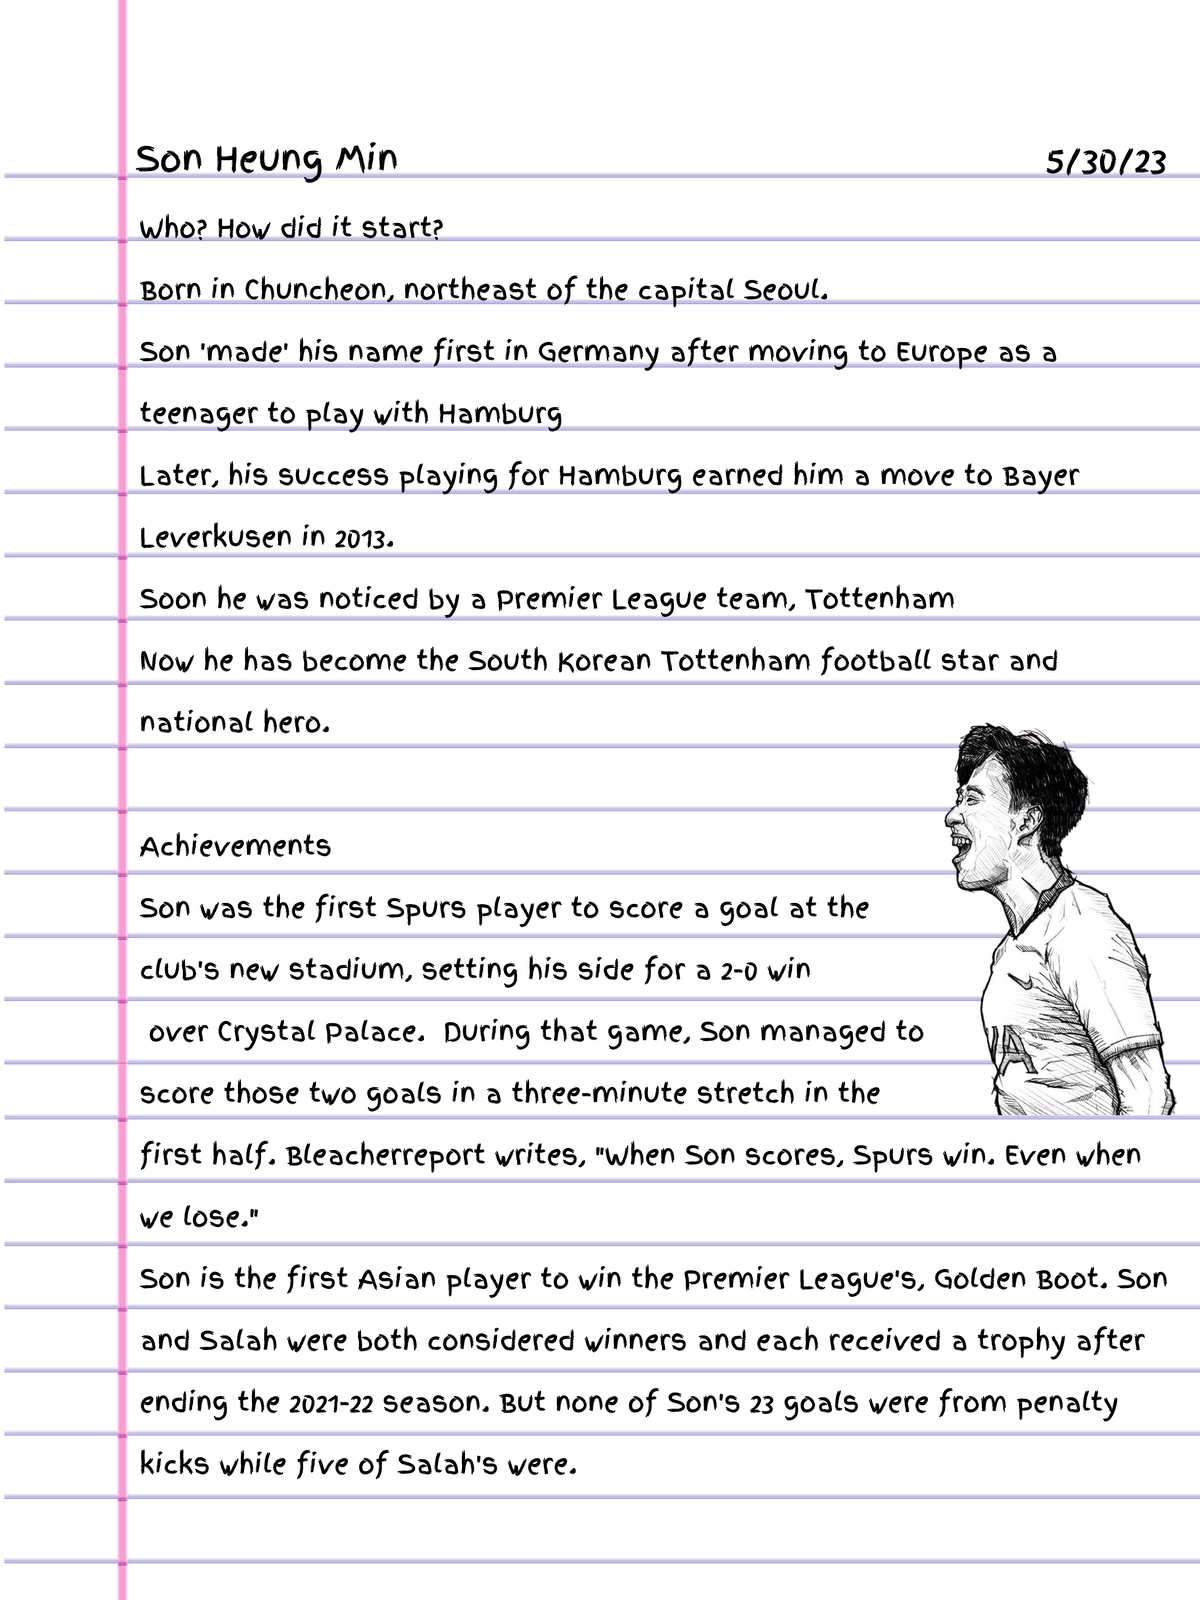 Son Heung Min 5/30/23
Who? How did it start?
Born in Chuncheon, northeast of the capital Seoul.
Son 'made' his name first in Germany after moving to Europe as a
teenager to play with Hamburg
Later, his success playing for Hamburg earned him a move to Bayer
Leverkusen in 2013.
Soon he was noticed by a Premier League team, Tottenham
Now he has become the South Korean Tottenham football star and
national hero.
Achievements
Son was the first Spurs player to score a goal at the
club's new stadium, setting his side for a 2-0 win
over Crystal Palace. During that game, Son managed to
score those two goals in a three-minute stretch in the
first half. Bleacherreport writes, "When Son scores, Spurs win. Even when
we lose."
Son is the first Asian player to win the Premier League's, Golden Boot. Son
and Salah were both considered winners and each received a trophy after
ending the 2021-22 season. But none of Son's 23 goals were from penalty
kicks while five of Salah's were.
IA